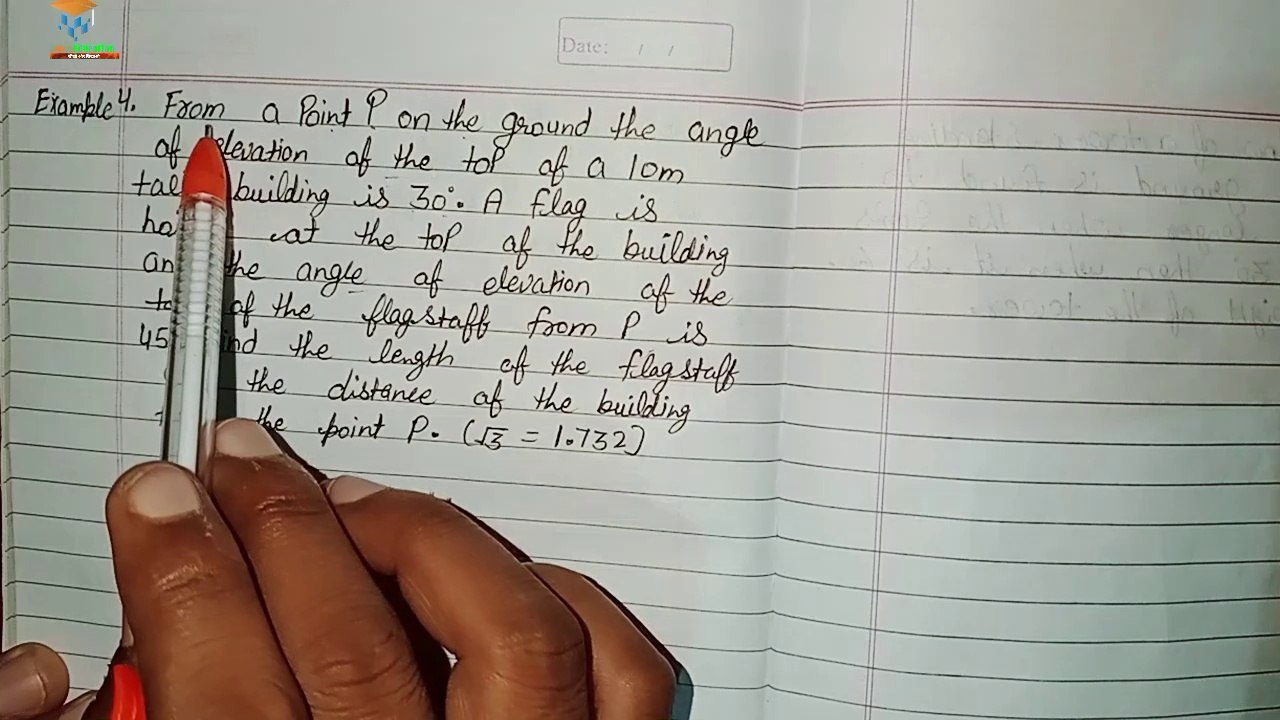 Date: / /
Example 4. From a Point P on the ground the angle
of elevation of the top of a 10m
building is 30°. A flag is
at the top of the building
the angle of elevation of the
of the flagstaff from P is
45 the length of the flagstaff
the distance of the building
the point P. (√3 = 1.732)